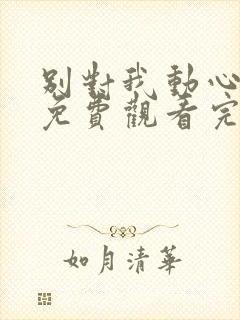 別對我動心
免費觀看完
如月清華